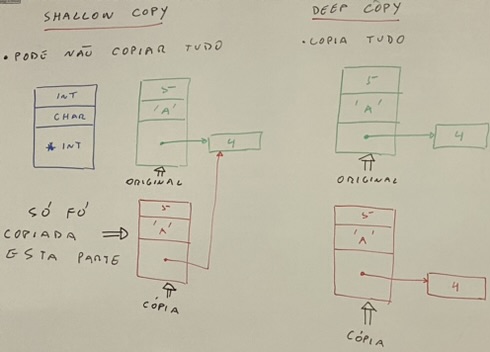 SHALLOW COPY
• PODE NÃO COPIAR TUDO
INT
CHAR
* INT
5
'A'
4
ORIGINAL
SÓ FÓ
COPIADA
ESTA PARTE
5
'A'
CÓPIA
DEEP CÓPY
• COPIA TUDO
5
'A'
4
ORIGINAL
5
'A'
4
CÓPIA